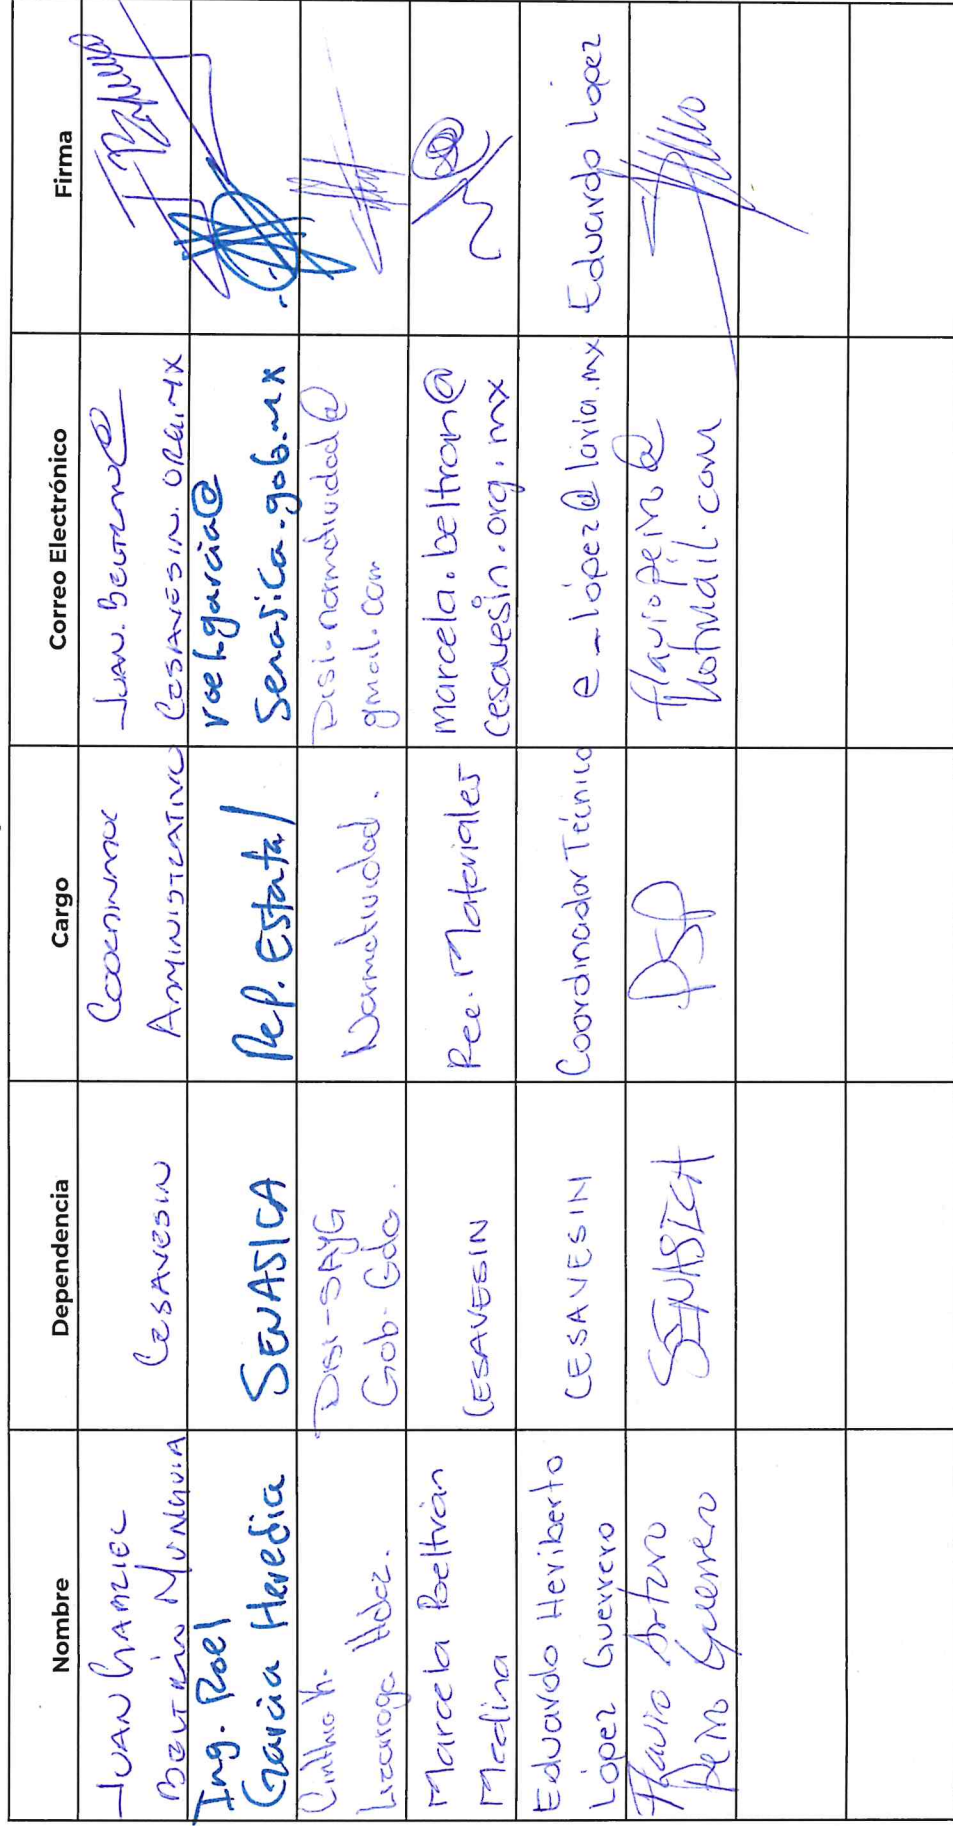 Nombre Dependencia Cargo Correo Electrónico Firma
JUAN GAMZIEL
BELTRÁN MUNGUIA
CESAVESIN
COORDINADOR
ADMINISTRATIVO
JUAN.BELTRAN@
CESAVESIN.ORG.MX
Ing. Roel
García Heredia
SENASICA
Rep. Estatal
roel.garcia@
senasica.gob.mx
Cinthia
Lizarraga Hdez.
DISI-SAyG
Gob. Gdo.
Normatividad.
Disi.normatividad@
gmail.com
Marcela Beltrán
Medina
CESAVESIN
Rec. Materiales
marcela.beltran@
cesavesin.org.mx
Eduardo Heriberto
López Guerrero
CESAVESIN
Coordinador Técnico
e_lópez@lavia.mx
Eduardo López
Flavio Arturo
Peiro Guerrero
SENASICA
PSP
flaviopeiro@
hotmail.com